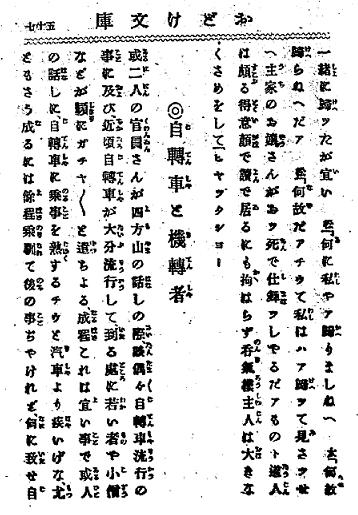 おどけ文庫 五十七
一緒に歸ッたが宜い 玄「何に私やア歸りましねへ 主「何故
歸らねへだア 玄「何故だアチウて私はハア歸ッて見さッせ
へ主家のお孃さんがおッ死で仕舞ッしやるだアものト遊人
は頗る得意顏で讀で居るにも拘はらず呑氣樓主人は大きな
くさめをして「ヒヤックショー
◎自轉車と機轉者
或二人の官員さんが四方山の話しの際談偶々自轉車流行の
事に及び近頃自轉車が大分流行して到る處に若い者や小僧
などが頻にガチャ〳〵と遣ちよる成程これは宜い事で或人
の話しに自轉車に乘事を熟するチウと汽車より疾いげな尤
ともさう成るには餘程乘剩て後の事ぢやけれど何に致せ自